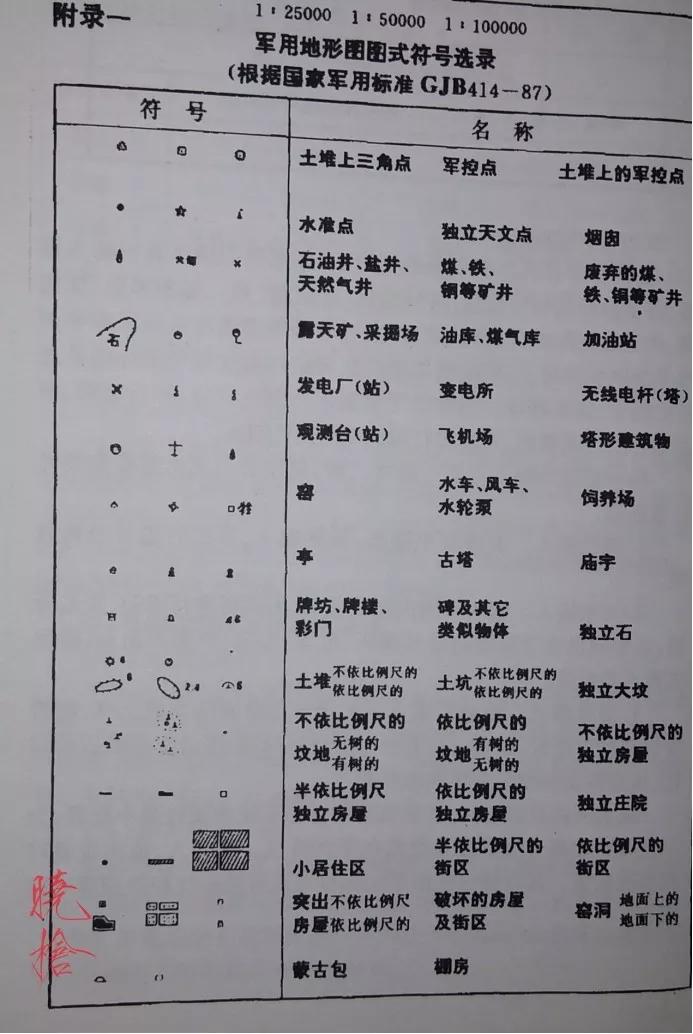 附录一
1：25000 1：50000 1：100000
军用地形图图式符号选录
（根据国家军用标准 GJB414－87）
符 号 名 称
土堆上三角点 军控点 土堆上的军控点
水准点 独立天文点 烟囱
石油井、盐井、 煤、铁、 废弃的煤、
天然气井 铜等矿井 铁、铜等矿井
石 露天矿、采掘场 油库、煤气库 加油站
发电厂（站） 变电所 无线电杆（塔）
观测台（站） 飞机场 塔形建筑物
窑 水车、风车、 饲养场
水轮泵
亭 古塔 庙宇
牌坊、牌楼、 碑及其它 独立石
彩门 类似物体
土堆 不依比例尺的 土坑 不依比例尺的 独立大坟
依比例尺的 依比例尺的
不依比例尺的 依比例尺的 不依比例尺的
坟地 无树的 坟地 有树的 独立房屋
有树的 无树的
半依比例尺 依比例尺的 独立庄院
独立房屋 独立房屋
小居住区 半依比例尺的 依比例尺的
街区 街区
突出 不依比例尺 破坏的房屋 窑洞 地面上的
房屋 依比例尺的 及街区 地面下的
蒙古包 棚房
晓